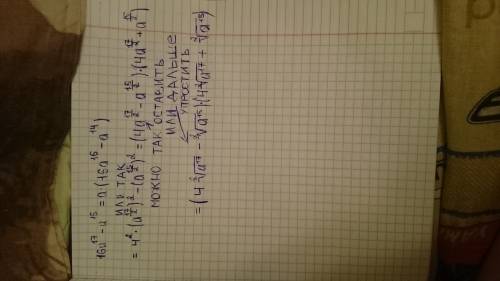 16a¹⁷ - a¹⁵ = a·(16a¹⁶ - a¹⁴)
ИЛИ ТАК
= 4²·(a^(17/2))² - (a^(15/2))² = (4a^(17/2) - a^(15/2))·(4a^(17/2) + a^(15/2))
МОЖНО ТАК ОСТАВИТЬ
ИЛИ ДАЛЬШЕ
УПРОСТИТЬ
= (4 ²√a¹⁷ - ²√a¹⁵)(4 ²√a¹⁷ + ²√a¹⁵)